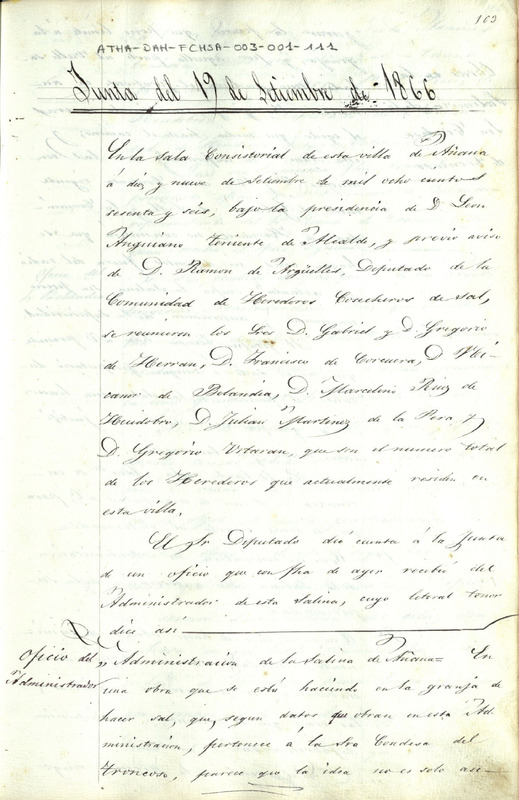 103
ATHA-DAH-FCHSA-003-001-111
Junta del 19 de Setiembre de 1866
En la sala Consistorial de esta villa de Añana
á diez y nueve de setiembre de mil ocho cientos
sesenta y seis, bajo la presidencia de D. Leon
Anguiano teniente de Alcalde, y previo aviso
de D. Ramon de Argüelles, Deputado de la
Comunidad de Herederos Concheros de sal,
se reunieron los Sres D. Gabriel y D. Gregorio
de Herran, D. Francisco de Corcuera, D Ni
canor de Bolandia, D. Marcelino Ruiz de
Huidobro, D. Julian Martinez de la Pera y
D. Gregorio Urbaran, que son el numero total
de los Herederos que actualmente residen en
esta villa.
El Sr Deputado dió cuenta á la Junta
de un oficio que con fha de ayer recibió del
Administrador de esta Salina, cuyo literal tenor
dice así
Oficio del
Administrador
"Administracion de la Salina de Añana= En
una obra que se está haciendo en la granja de
hacer sal, que, segun datos que obran en esta Ad
ministracion, pertenece á la Sra Condesa del
troncoso, parece que la idea no es solo ase-